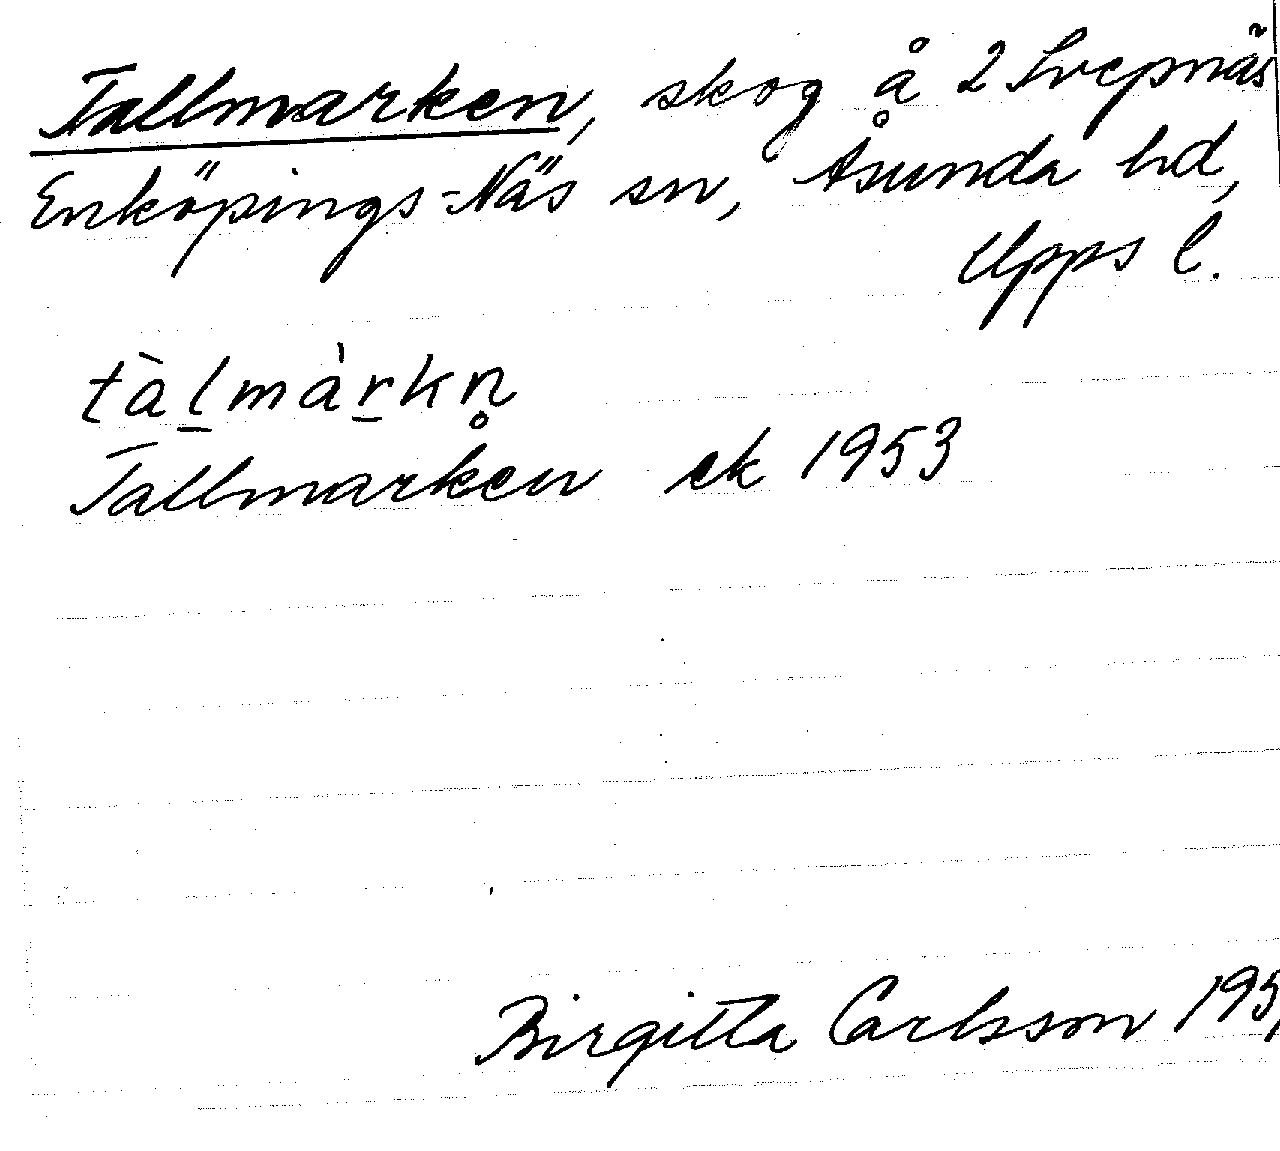 Tallmarken, skog å 2 Svepnäs
Enköpings-Näs sn, Åsunda hd,
Upps l.
tàl̠màr̠kn̥
Tallmarken ek 1953
Birgitta Carlsson 195